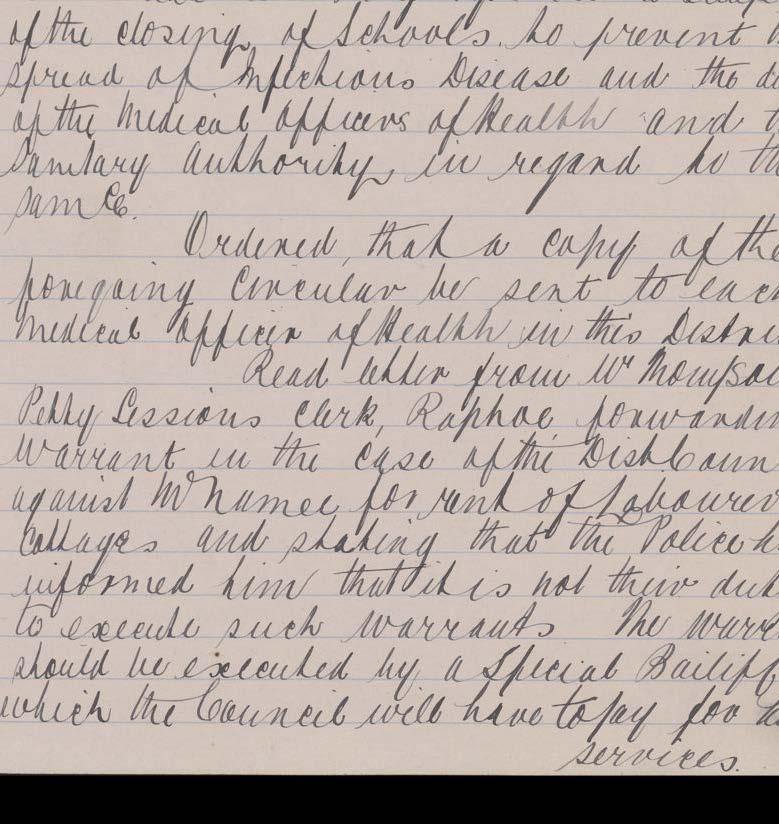 of the closing of Schools to prevent
spread of Infectious Disease and the
of the Medical Officers of Health and
Sanitary Authority in regard to
same.
Ordered, that a copy of the
foregoing Circular be sent to each
Medical Officer of Health in this
Read letter from Mr Thompson
Petty Sessions Clerk, Raphoe, forwarding
Warrant in the case of the Dist. Coun
against McNamee for rent of Labourers
Cottages and stating that the Police
informed him that it is not their
to execute such Warrants The
should be executed by a Special Bailiff
which the Council will have to pay for
services.